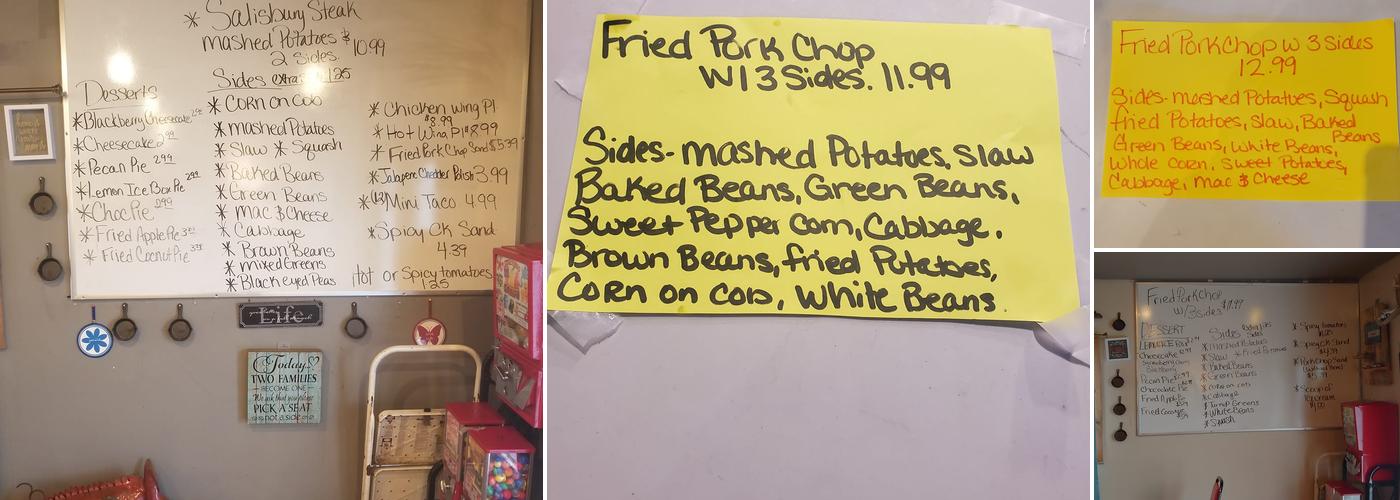 * Salisbury Steak
mashed Potatoes $
10.99
2 Sides.
Sides extra $ 1.25
Desserts
* Blackberry Cheesecake
* Cheesecake 2.99
* Pecan Pie 2.99
* Lemon Ice Box Pie 2.99
* Choc Pie 2.99
* Fried Apple Pie
* Fried Coconut Pie
* CORN on COB
* mashed Potatoes
* Slaw * Squash
* Baked Beans
* Green Beans
* Mac & Cheese
* Cabbage
* Brown Beans
* mixed Greens
* Black eyed Peas
* Chicken Wing Pl
$8.99
* Hot Wing Pl $8.99
* Fried Pork Chop Sand $5.39
* Jalapeno Cheddar Polish 3.99
* (12) Mini Taco 4.99
* Spicy CK Sand
4.39
Hot or Spicy tomatoes
1.25
Life
Today
TWO FAMILIES
BECOME ONE
We ask that you please
PICK A SEAT
not a side
Fried Pork Chop
W/ 3 Sides. 11.99
Sides- mashed Potatoes, Slaw
Baked Beans, Green Beans,
Sweet Pepper Corn, Cabbage.
Brown Beans, fried Potatoes,
CORN on COB, White Beans.
Fried Pork Chop W 3 Sides
12.99
Sides- mashed Potatoes, Squash
fried Potatoes, Slaw, Baked
Beans
Green Beans, White Beans,
Whole Corn, Sweet Potatoes,
Cabbage, Mac & Cheese
Fried Pork Chop
W/ 3 sides $11.99
DESSERT
Cheesecake
Pecan Pie
Chocolate Pie
Fried Apple Pie
Fried Coconut
Sides
* Mashed Potatoes
* Slaw
* Baked Beans
* Green Beans
* Corn on cob
* Cabbage
* Turnip Greens
* White Beans
* Squash
* Spicy tomatoes
* Spicy CK Sand
$4.39
* Pork Chop Sand
* Scoop of